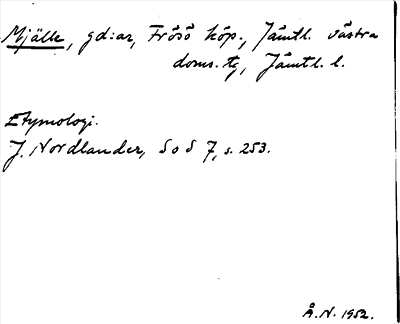 Mjälle, gd:ar, Frösö köp., Jämtl. västra
doms. tg, Jämtl. l.
Etymologi.
J. Nordlander, SoS 7, s. 253.
Å.N. 1952.